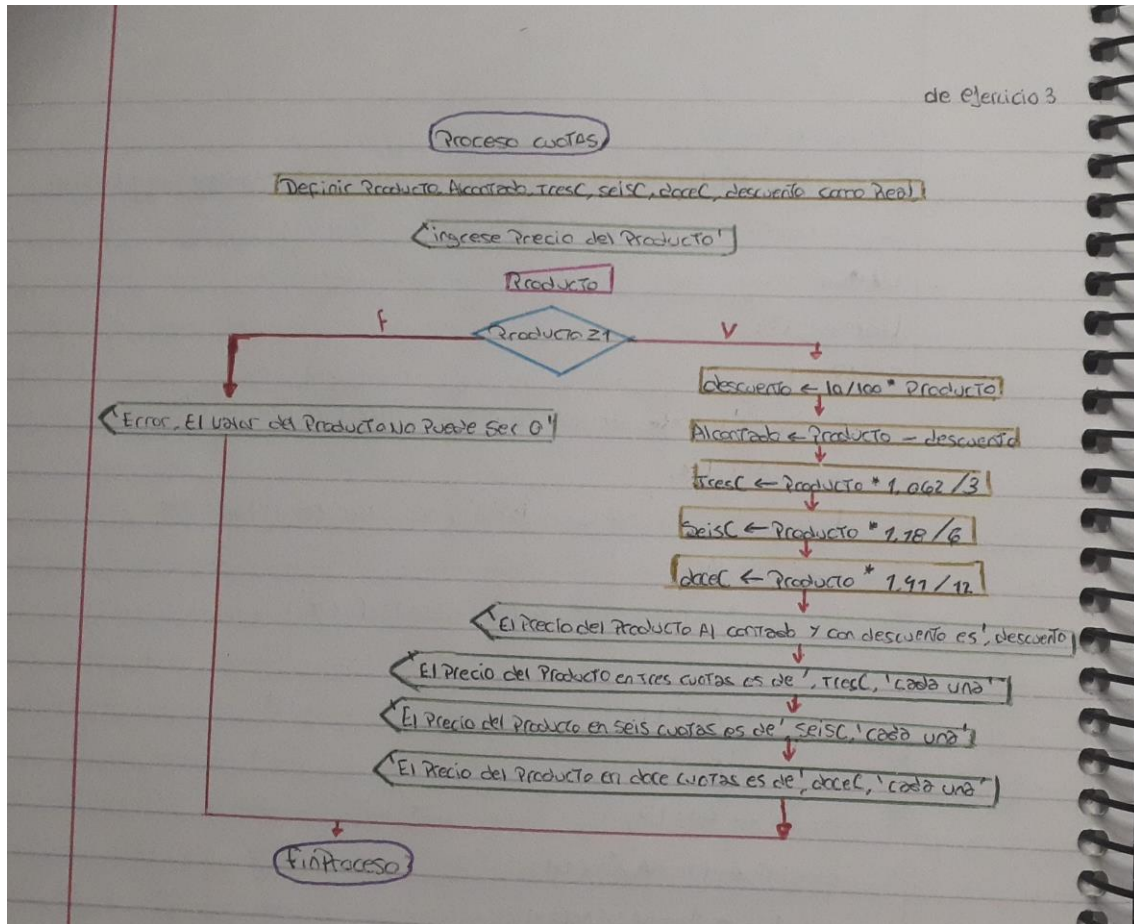 de ejercicio 3
Proceso cuotas
Definir Producto, Alcontado, TresC, seisC, doceC, descuento como Real
'ingrese Precio del Producto'
Producto
F
Producto ≥1
V
descuento ← 10/100 * Producto
'Error, El valor del Producto No Puede Ser 0'
Alcontado ← Producto - descuento
TresC ← Producto * 1.062/3
SeisC ← Producto * 1,18/6
doceC ← Producto * 1,41/12
'El Precio del Producto Al contado y con descuento es', descuento
'El Precio del Producto en Tres cuotas es de', TresC, 'cada una'
'El Precio del Producto en seis cuotas es de', seisC, 'cada una'
'El Precio del Producto en doce cuotas es de', doceC, 'cada una'
finProceso